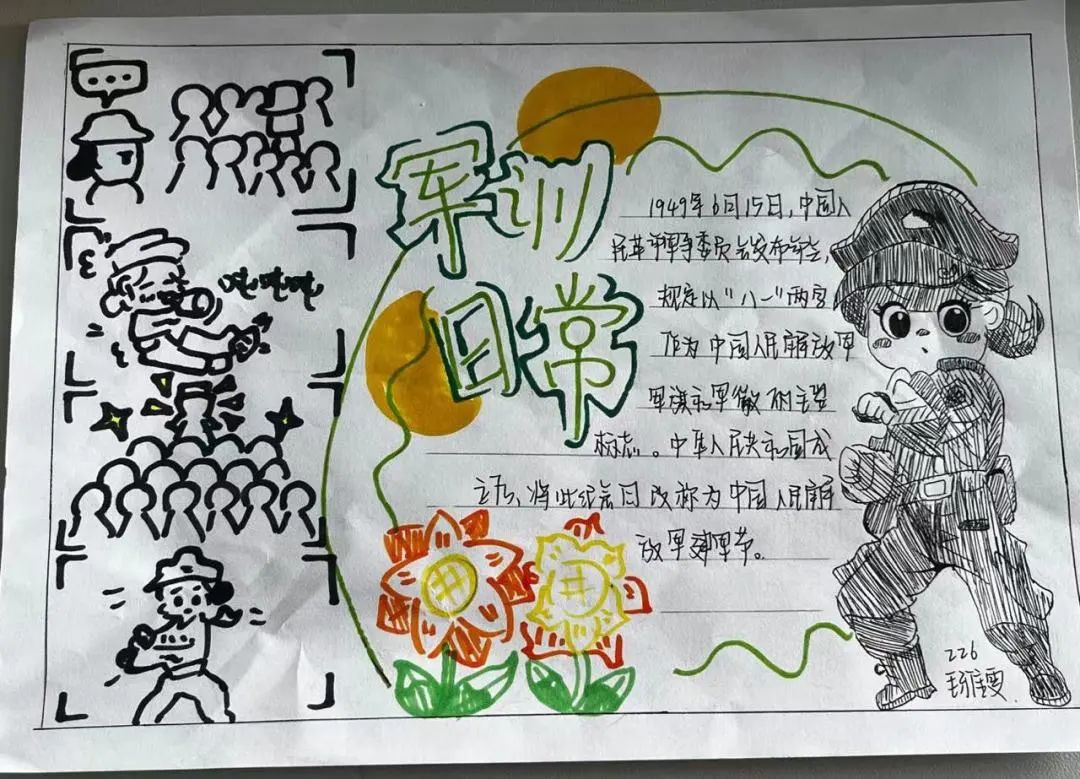 军训
日常
吨吨吨
1949年6月15日,中国人
民革命军事委员会发布命令,
规定以“八一”两字
作为中国人民解放军
军旗和军徽的主要
标志。中华人民共和国成
立后、将此纪念日改称为中国人民解
放军建军节。
226